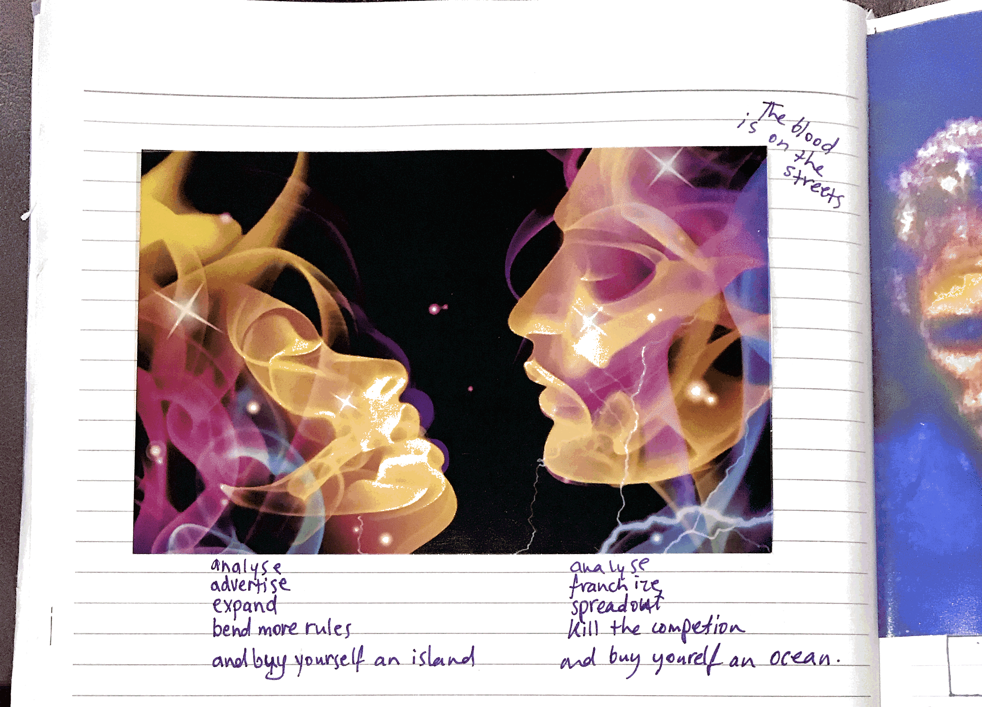 The blood
is on the
streets
analyse
advertise
expand
bend more rules
and byy yourself an island
analyse
franchize
spreadout
kill the competion
and buy yourelf an ocean.